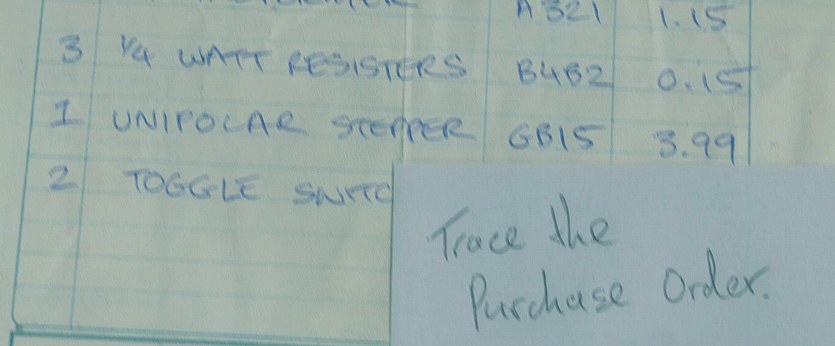 A321 1.15
3 1/4 WATT RESISTERS B4B2 0.15
1 UNIPOLAR STEPPER GB15 3.99
2 TOGGLE SWITC
Trace the
Purchase Order.